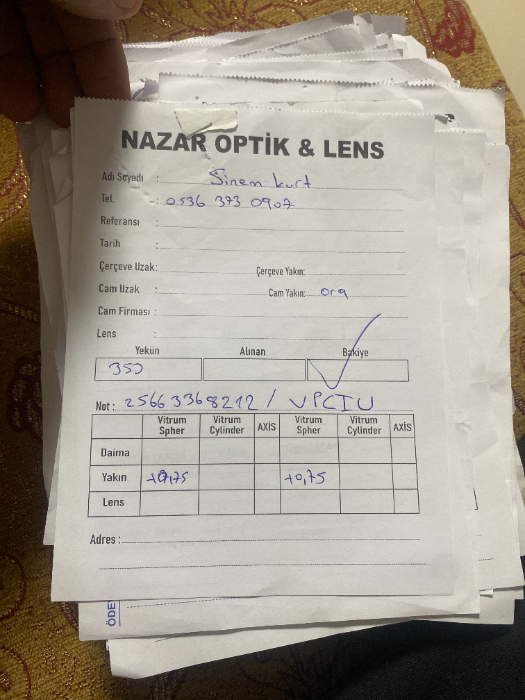 NAZAR OPTİK & LENS
Adı Soyadı : Sinem kurt
Tel. : 0536 373 0907
Referansı :
Tarih :
Çerçeve Uzak: Çerçeve Yakın:
Cam Uzak : Cam Yakın: org
Cam Firması :
Lens :
Yekün Alınan Bakiye
350
Not: 25663368212 / VPCIU
Vitrum Spher Vitrum Cylinder AXİS Vitrum Spher Vitrum Cylinder AXİS
Daima
Yakın +0,75 +0,75
Lens
Adres :
ÖDE